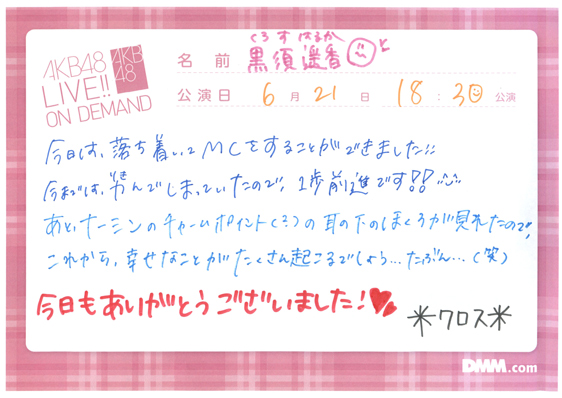 AKB48
LIVE!!
ON DEMAND
AKB
48
くろすはるか
名前 黒須遥香
公演日 6月21日 18:30公演
今日は、落ち着いてMCをすることができました!!
今までは、噛んでしまっていたので、1歩前進です!!
あと、ナーミンのチャームポイント(?)の耳の下のほくろが見れたので、
これから、幸せなことがたくさん起こるでしょう…たぶん…(笑)
今日もありがとうございました!
*クロス*
DMM.com